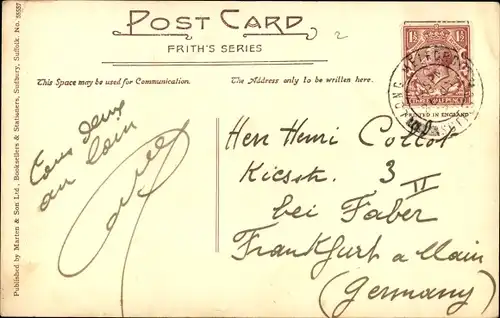 POST CARD
FRITH'S SERIES
2
This Space may be used for Communication.
The Address only to be written here.
1½ 1½
PRINTED IN ENGLAND
Tous deux
au loin
Herr Henri Collot
Kiesstr. 3 II
bei Faber
Frankfurt a Main
(Germany)
Published by Marten & Son Ltd., Booksellers & Stationers, Sudbury, Suffolk. No. 55557